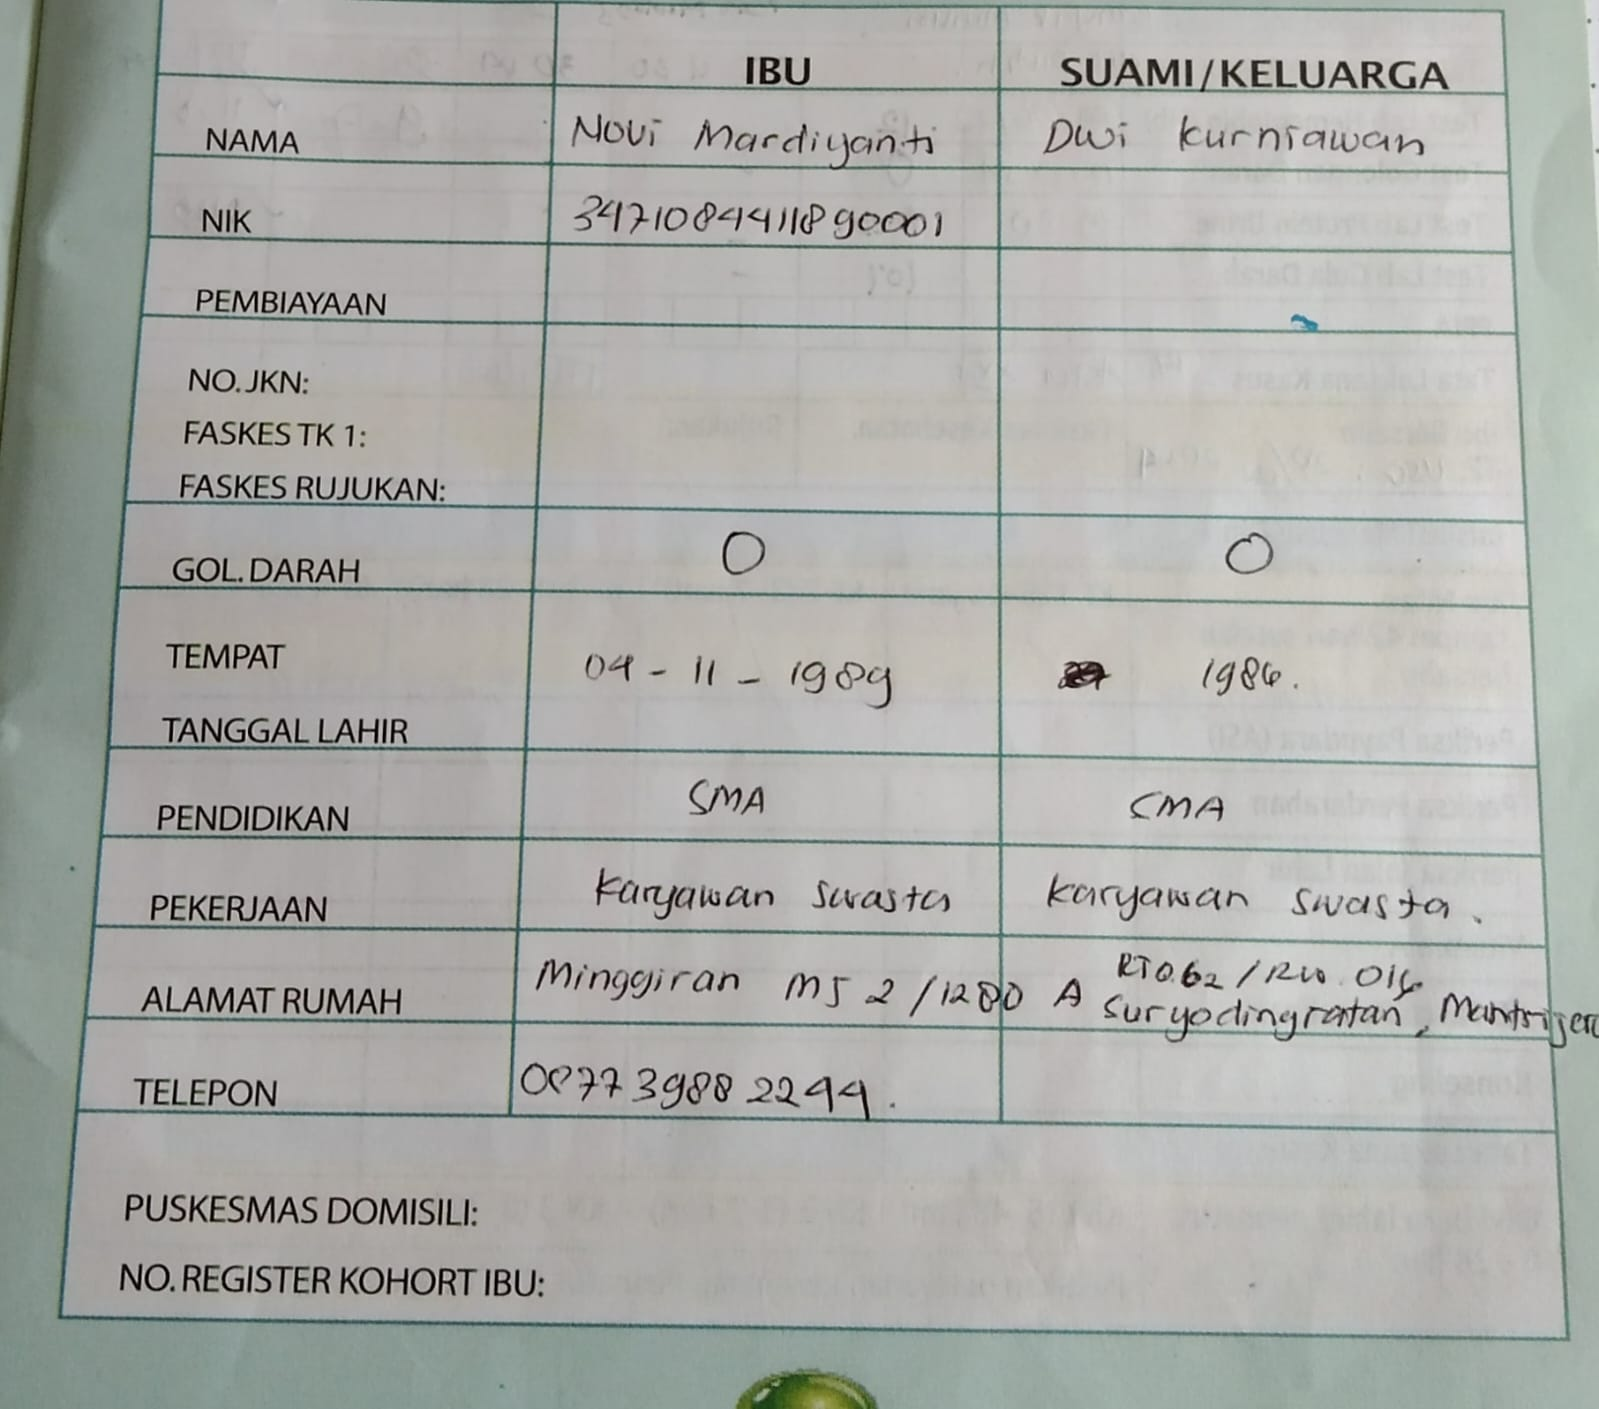 IBU SUAMI/KELUARGA
NAMA Novi Mardiyanti Dwi kurniawan
NIK 3471084411890001
PEMBIAYAAN
NO. JKN:
FASKES TK 1:
FASKES RUJUKAN:
GOL. DARAH O O
TEMPAT
04 - 11 - 1989 1986.
TANGGAL LAHIR
PENDIDIKAN SMA SMA
PEKERJAAN karyawan swasta karyawan swasta.
RT 062 / RW. 016
ALAMAT RUMAH Minggiran MJ 2 / 1280 A Suryodingratan, Mantrijero
TELEPON 087739882244.
PUSKESMAS DOMISILI:
NO. REGISTER KOHORT IBU: